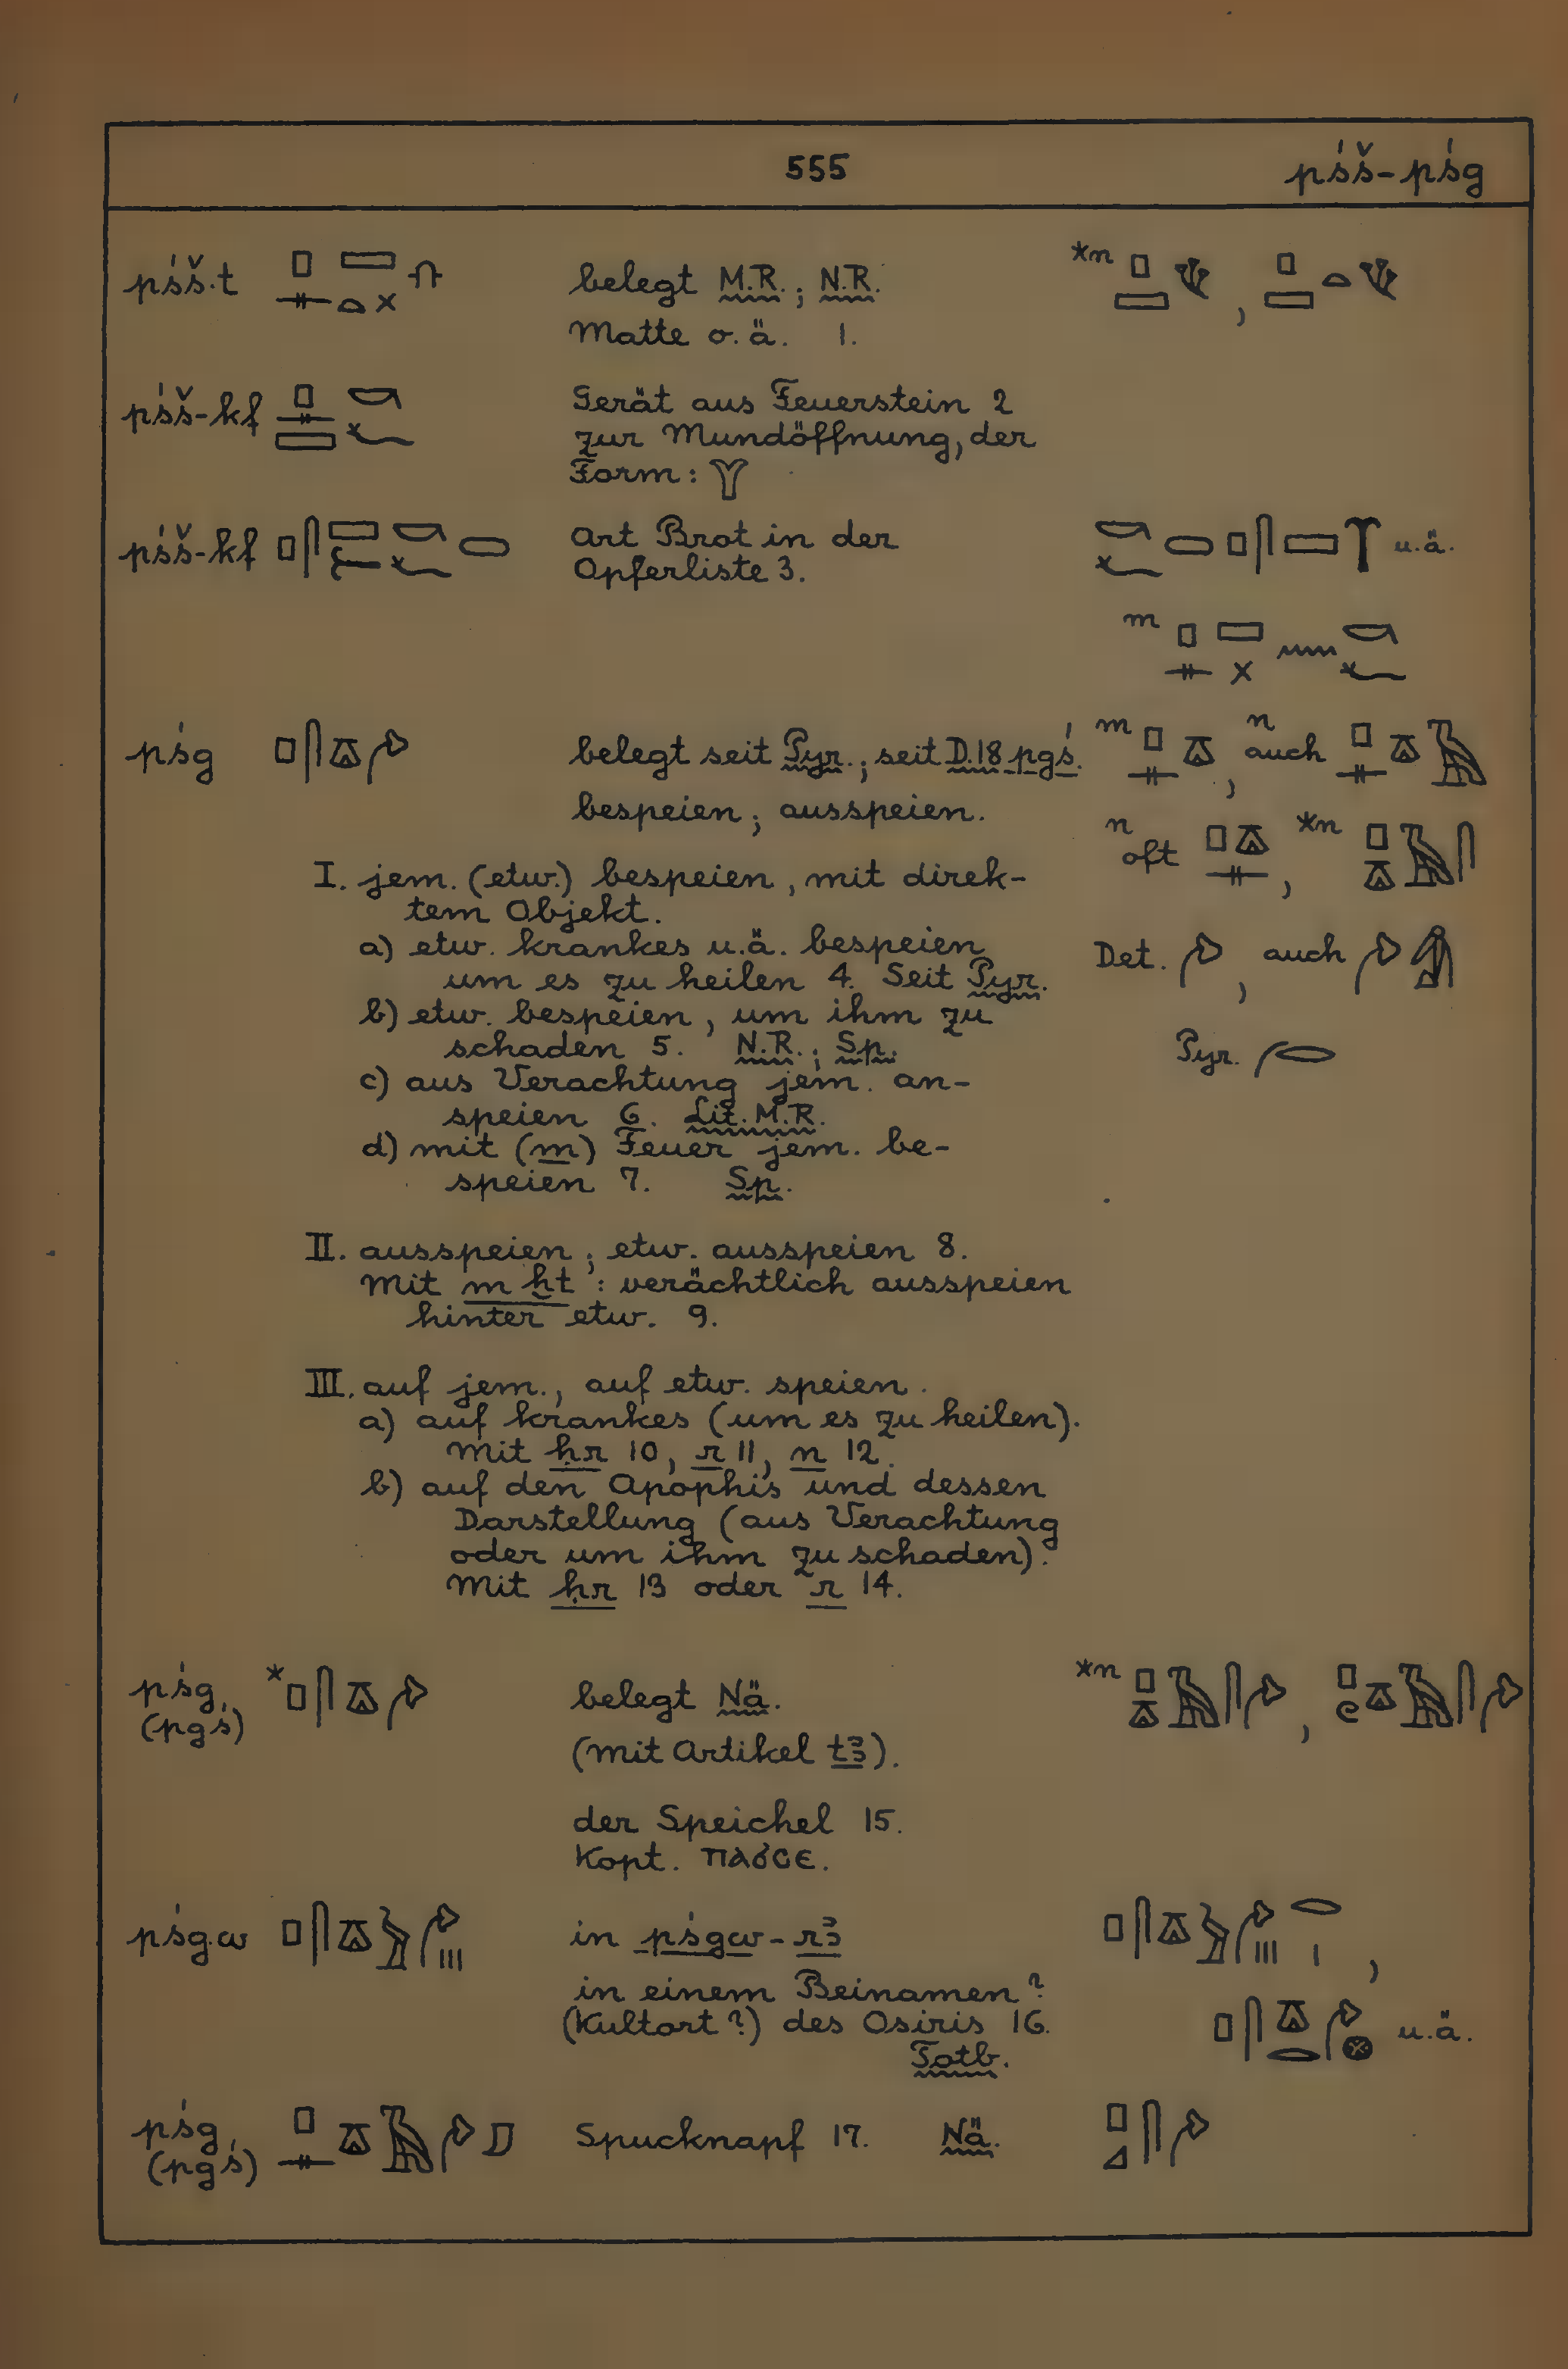 555
pśš-pśg
pśš.t belegt M.R.; N.R.
Matte o.ä. 1.
pśš-kf Gerät aus Feuerstein 2
zur Mundöffnung, der
Form:
pśš-kf Art Brot in der u.ä.
Opferliste 3.
m
pśg belegt seit Pyr.; seit D.18 pgś. m , n auch
bespeien; ausspeien.
n oft , *n
I. jem. (etw.) bespeien, mit direk-
tem Objekt.
a) etw. krankes u.ä. bespeien
um es zu heilen 4. Seit Pyr.
Det. , auch
b) etw. bespeien, um ihm zu
schaden 5. N.R.; Sp.
Pyr.
c) aus Verachtung jem. an-
speien 6. Lit. M.R.
d) mit (m) Feuer jem. be-
speien 7. Sp.
II. ausspeien; etw. ausspeien 8.
Mit m ḫt: verächtlich ausspeien
hinter etw. 9.
III. auf jem., auf etw. speien.
a) auf krankes (um es zu heilen).
Mit ḥr 10, r 11, n 12.
b) auf den Apophis und dessen
Darstellung (aus Verachtung
oder um ihm zu schaden).
Mit ḥr 13 oder r 14.
pśg, * belegt Nä. *n ,
(pgś)
(mit Artikel tꜣ).
der Speichel 15.
Kopt. ⲡⲁϭⲥⲉ.
pśg.w in pśgw-rꜣ ,
in einem Beinamen?
(Kultort?) des Osiris 16. u.ä.
Totb.
pśg, Spucknapf 17. Nä.
(pgś)